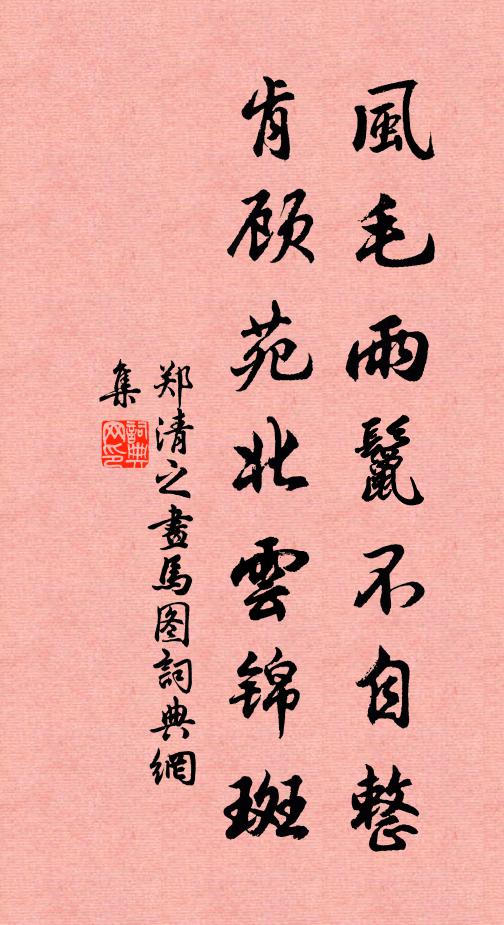 風毛雨鬣不自整
肯顾苑北雲锦斑
郑清之畫馬图詞典網
集
詞典网印